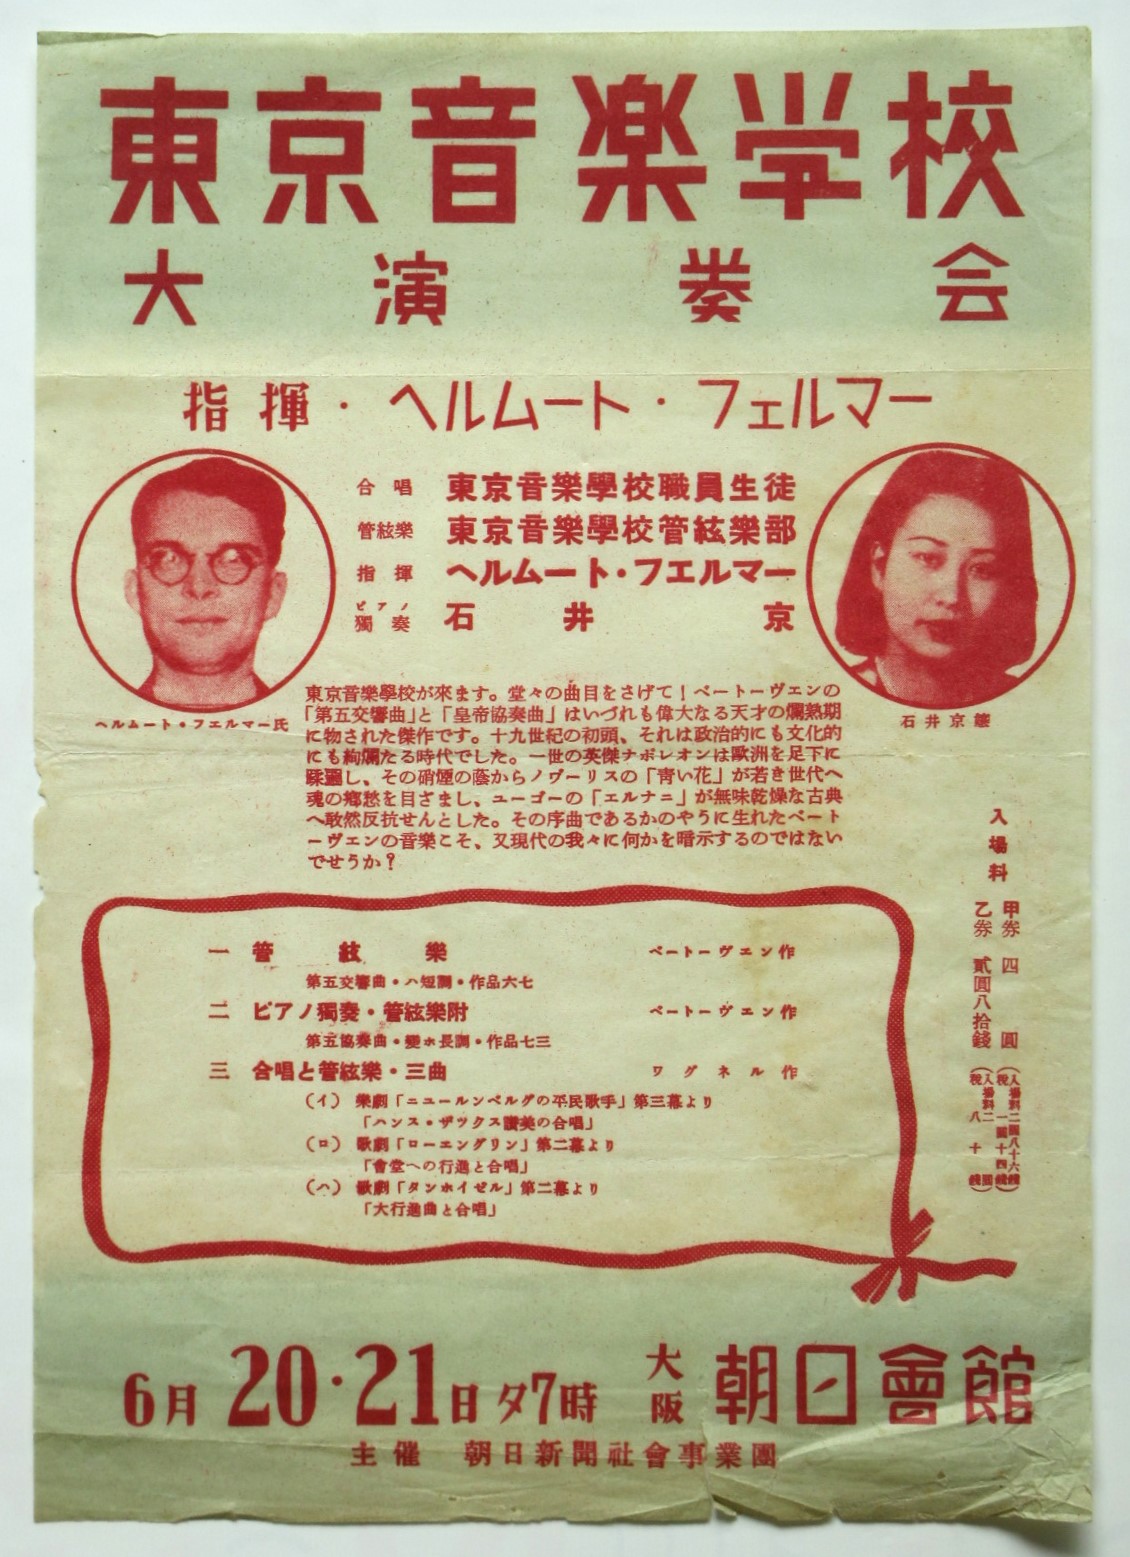 東京音楽学校
大演奏会
指揮・ヘルムート・フェルマー
合唱 東京音樂學校職員生徒
管絃樂 東京音樂學校管絃樂部
指揮 ヘルムート・フエルマー
ピアノ獨奏 石井京
ヘルムート・フェルマー氏
石井京
東京音樂學校が來ます。堂々の曲目をさげて！ベートーヴェンの
「第五交響曲」と「皇帝協奏曲」はいづれも偉大なる天才の爛熟期
に物された傑作です。十九世紀の初頭、それは政治的にも文化的
にも絢爛たる時代でした。一世の英傑ナポレオンは歐洲を足下に
蹂躙し、その硝煙の蔭からノヴーリスの「靑い花」が若き世代へ
魂の鄕愁を目ざまし、ユーゴーの「エルナニ」が無味乾燥な古典
へ敢然反抗せんとした。その序曲であるかのやうに生れたベート
ーヴェンの音樂こそ、又現代の我々に何かを暗示するのではない
でせうか？
入場料
甲券 四圓（入場料二圓八十六錢 税一圓十四錢）
乙券 貳圓八拾錢（入場料二圓 税八十錢）
一 管絃樂 ベートーヴェン作
第五交響曲・ハ短調・作品六七
二 ピアノ獨奏・管絃樂附 ベートーヴェン作
第五協奏曲・變ホ長調・作品七三
三 合唱と管絃樂・三曲 ワグネル作
（イ） 樂劇「ニユールンベルグの平民歌手」第三幕より
「ハンス・ザツクス讃美の合唱」
（ロ） 歌劇「ローエングリン」第二幕より
「會堂への行進と合唱」
（ハ） 歌劇「タンホイゼル」第二幕より
「大行進曲と合唱」
6月20・21日夕7時 大阪 朝日會館
主催 朝日新聞社會事業團